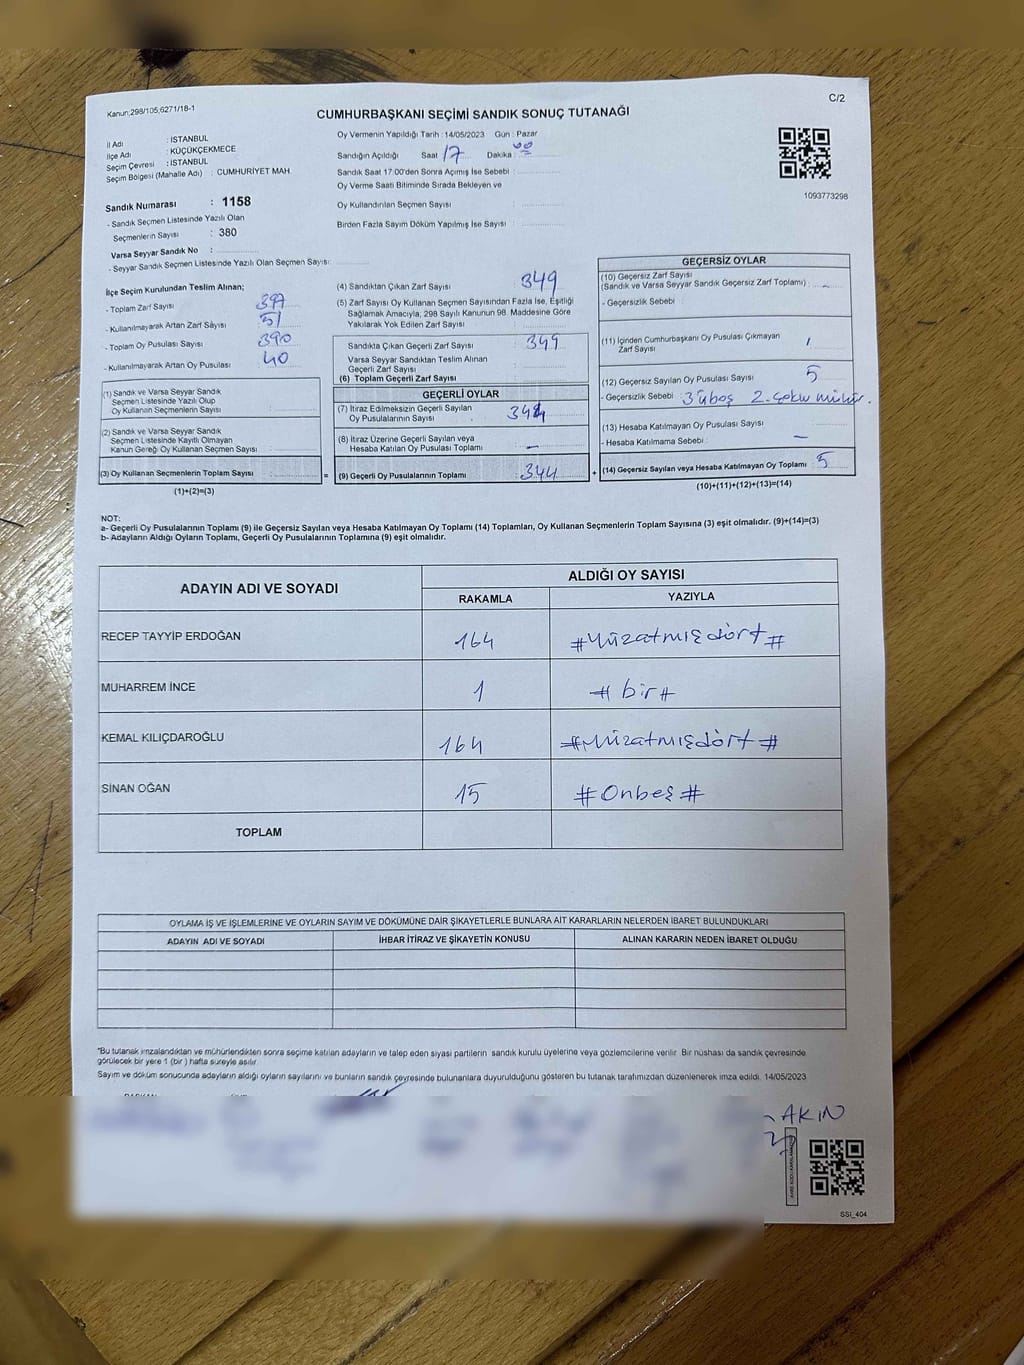 Kanun:298/105;6271/18-1
C/2
CUMHURBAŞKANI SEÇİMİ SANDIK SONUÇ TUTANAĞI
İl Adı : İSTANBUL
İlçe Adı : KÜÇÜKÇEKMECE
Seçim Çevresi : İSTANBUL
Seçim Bölgesi (Mahalle Adı) : CUMHURİYET MAH.
Sandık Numarası : 1158
- Sandık Seçmen Listesinde Yazılı Olan
Seçmenlerin Sayısı : 380
Varsa Seyyar Sandık No :
- Seyyar Sandık Seçmen Listesinde Yazılı Olan Seçmen Sayısı:
Oy Vermenin Yapıldığı Tarih : 14/05/2023 Gün : Pazar
Sandığın Açıldığı Saat 17 Dakika : 00
Sandık Saat 17:00'den Sonra Açımış İse Sebebi :
Oy Verme Saati Bitiminde Sırada Bekleyen ve
Oy Kullandırılan Seçmen Sayısı :
Birden Fazla Sayım Döküm Yapılmış İse Sayısı :
1093773298
İlçe Seçim Kurulundan Teslim Alınan;
- Toplam Zarf Sayısı :
- Kullanılmayarak Artan Zarf Sayısı :
- Toplam Oy Pusulası Sayısı : 390
- Kullanılmayarak Artan Oy Pusulası : 40
(1) Sandık ve Varsa Seyyar Sandık
Seçmen Listesinde Yazılı Olup
Oy Kullanan Seçmenlerin Sayısı :
(2) Sandık ve Varsa Seyyar Sandık
Seçmen Listesinde Kayıtlı Olmayan
Kanun Gereği Oy Kullanan Seçmen Sayısı :
(3) Oy Kullanan Seçmenlerin Toplam Sayısı
(1)+(2)=(3)
(4) Sandıktan Çıkan Zarf Sayısı : 349
(5) Zarf Sayısı Oy Kullanan Seçmen Sayısından Fazla İse, Eşitliği
Sağlamak Amacıyla, 298 Sayılı Kanunun 98. Maddesine Göre
Yakılarak Yok Edilen Zarf Sayısı :
Sandıkta Çıkan Geçerli Zarf Sayısı : 349
Varsa Seyyar Sandıktan Teslim Alınan
Geçerli Zarf Sayısı :
(6) Toplam Geçerli Zarf Sayısı :
GEÇERLİ OYLAR
(7) İtiraz Edilmeksizin Geçerli Sayılan
Oy Pusulalarının Sayısı : 344
(8) İtiraz Üzerine Geçerli Sayılan veya
Hesaba Katılan Oy Pusulası Toplamı : -
= (9) Geçerli Oy Pusulalarının Toplamı : 344 +
GEÇERSİZ OYLAR
(10) Geçersiz Zarf Sayısı
(Sandık ve Varsa Seyyar Sandık Geçersiz Zarf Toplamı) : -
- Geçersizlik Sebebi :
(11) İçinden Cumhurbaşkanı Oy Pusulası Çıkmayan
Zarf Sayısı :
(12) Geçersiz Sayılan Oy Pusulası Sayısı : 5
- Geçersizlik Sebebi : 3'ü boş 2.
(13) Hesaba Katılmayan Oy Pusulası Sayısı :
- Hesaba Katılmama Sebebi : -
(14) Geçersiz Sayılan veya Hesaba Katılmayan Oy Toplamı : 5
(10)+(11)+(12)+(13)=(14)
NOT:
a- Geçerli Oy Pusulalarının Toplamı (9) ile Geçersiz Sayılan veya Hesaba Katılmayan Oy Toplamı (14) Toplamları, Oy Kullanan Seçmenlerin Toplam Sayısına (3) eşit olmalıdır. (9)+(14)=(3)
b- Adayların Aldığı Oyların Toplamı, Geçerli Oy Pusulalarının Toplamına (9) eşit olmalıdır.
ADAYIN ADI VE SOYADI
ALDIĞI OY SAYISI
RAKAMLA YAZIYLA
RECEP TAYYİP ERDOĞAN 164 #Yüzatmışdört#
MUHARREM İNCE 1 #bir#
KEMAL KILIÇDAROĞLU 164 #Yüzatmışdört#
SİNAN OĞAN 15 #Onbeş#
TOPLAM
OYLAMA İŞ VE İŞLEMLERİNE VE OYLARIN SAYIM VE DÖKÜMÜNE DAİR ŞİKAYETLERLE BUNLARA AİT KARARLARIN NELERDEN İBARET BULUNDUKLARI
ADAYIN ADI VE SOYADI İHBAR İTİRAZ VE ŞİKAYETİN KONUSU ALINAN KARARIN NEDEN İBARET OLDUĞU
*Bu tutanak imzalandıktan ve mühürlendikten sonra seçime katılan adayların ve talep eden siyasi partilerin sandık kurulu üyelerine veya gözlemcilerine verilir. Bir nüshası da sandık çevresinde
görülecek bir yere 1 (bir) hafta süreyle asılır.
Sayım ve döküm sonucunda adayların aldığı oyların sayılarını ve bunların sandık çevresinde bulunanlara duyurulduğunu gösteren bu tutanak tarafımızdan düzenlenerek imza edildi. 14/05/2023
AKIN
SSİ_404